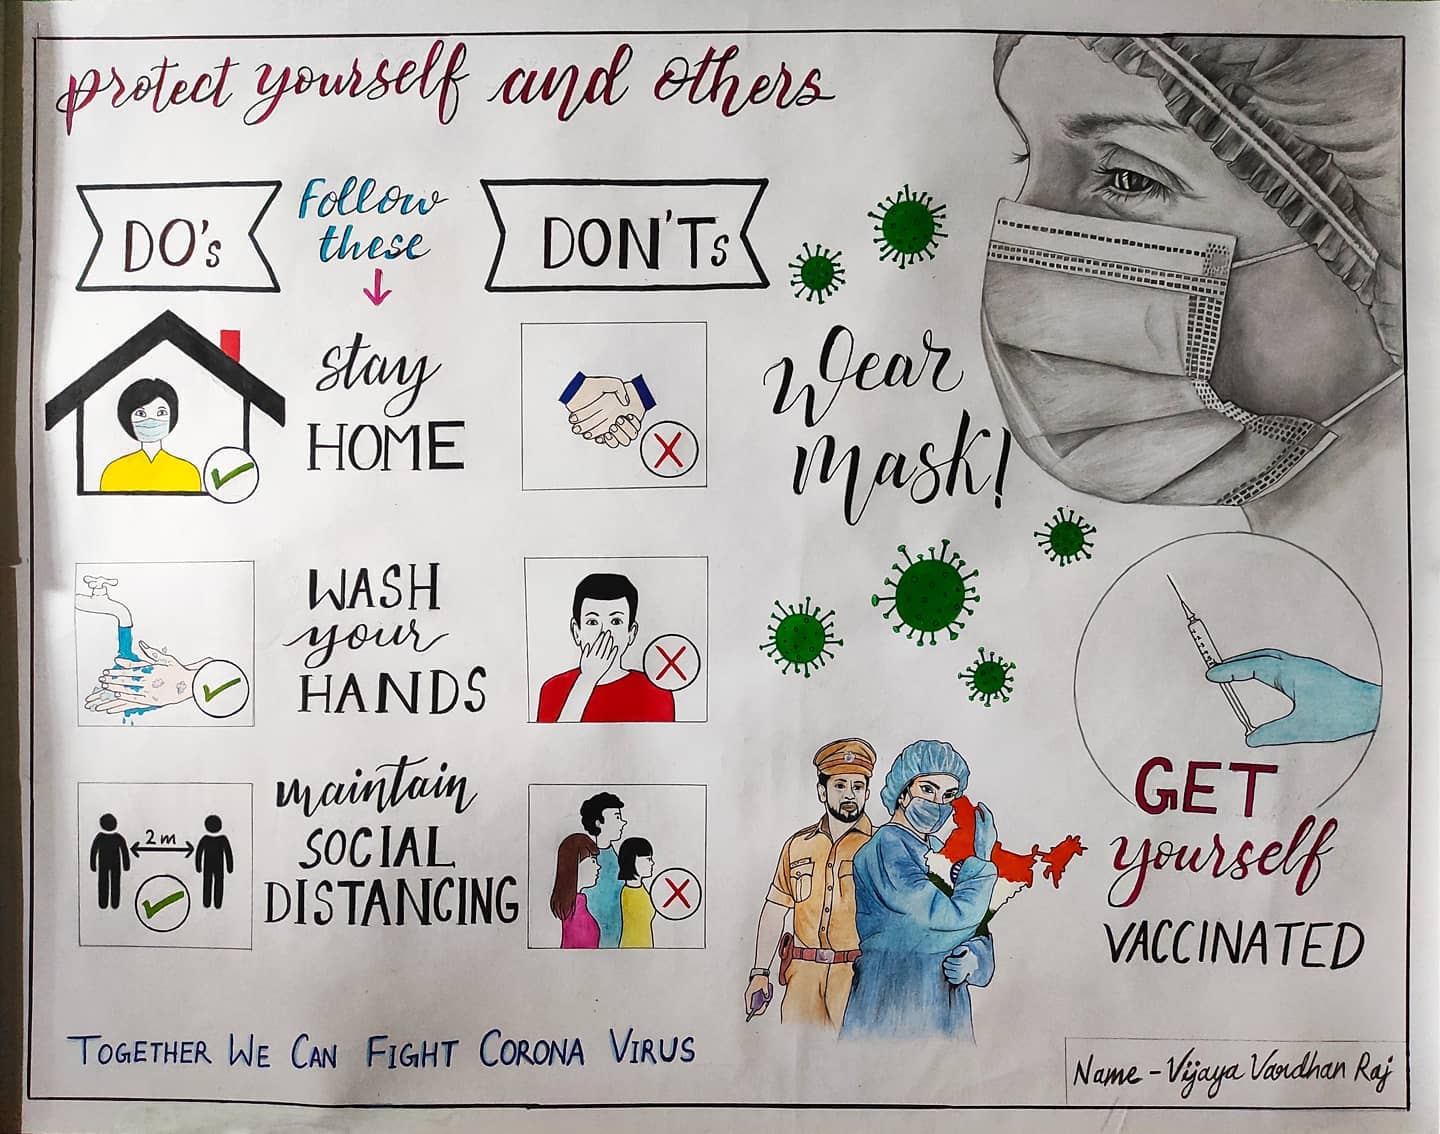 protect yourself and others
DO's
Follow
these
DON'Ts
stay
HOME
WASH
your
HANDS
2m
maintain
SOCIAL
DISTANCING
Wear
mask!
GET
yourself
VACCINATED
TOGETHER WE CAN FIGHT CORONA VIRUS
Name - Vijaya Vardhan Raj